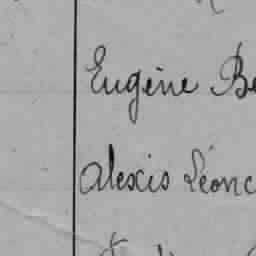 Eugène Be
Alexis Léonc